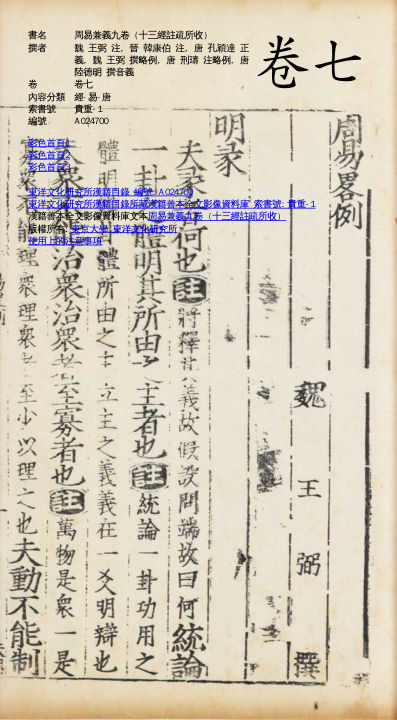 書名 周易兼義九卷（十三經註疏所收）
撰者 魏 王弼 注，晉 韓康伯 注，唐 孔穎達 正
義，魏 王弼 撰略例，唐 刑璹 注略例，唐
陸德明 撰音義
卷 卷七
內容分類 經-易-唐
索書號 貴重-1
編號 A024700
卷七
彩色首頁1
彩色首頁2
彩色首頁3
東洋文化研究所漢籍目錄 編號: A024700
東洋文化研究所漢籍目錄所藏漢籍善本全文影像資料庫 索書號: 貴重-1
漢籍善本全文影像資料庫文本周易兼義九卷（十三經註疏所收）
版權所有: 東京大學 東洋文化研究所
使用上的注意事項
周易畧例
魏 王 弼 撰
明彖
夫彖者何也註將釋其義故假設問端故曰何統論
一卦之體明其所由之主者也註統論一卦功用之
體明
體所由之主立主之義義在一爻明辯也
夫眾不能治眾治眾者至寡者也註萬物是眾一是
寡眾不能理眾理眾者至少以理之也夫動不能制